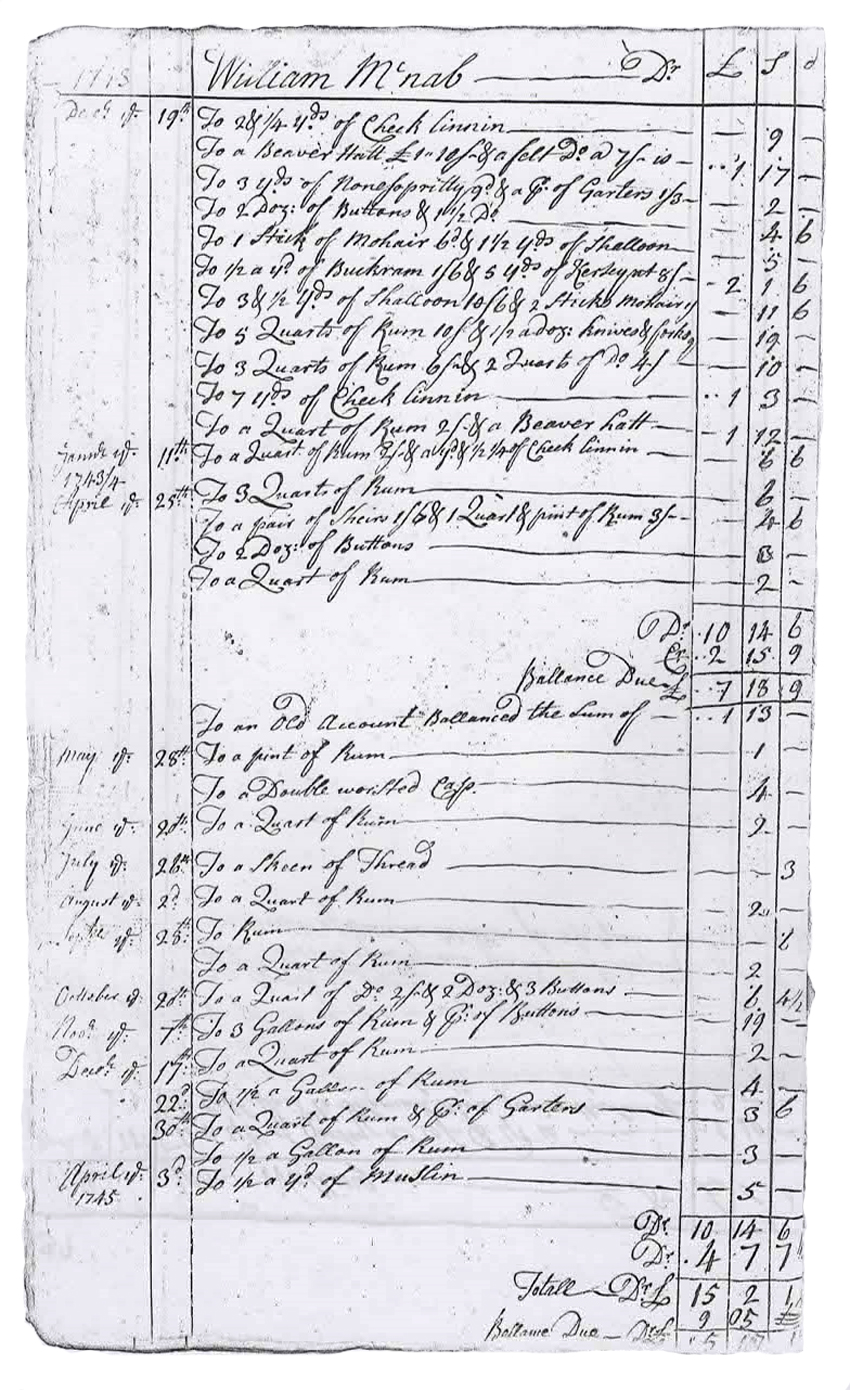 1743 William Mcnab — Dr. £ S d
Decr. ye. 19th To 2 & 1/4 yds of Check linnin — 9 —
To a Beaver Hatt £1 " 10/- & a felt Do a 7/- is — 1 17 —
To 3 yds of Nonesopritty 9d & a Pr. of Garters 1/3 — 2 —
To 2 Doz: of Buttons & 1 1/2 Do — 4 6
To 1 Stick of Mohair 6d & 1 1/2 yds of Shalloon — 5 —
To 1/2 a yd. of Buckram 1/6 & 5 yds of Kersey at 8/- — 2 1 6
To 3 & 1/2 yds of Shalloon 10/6 & 2 Sticks Mohair 1/ — 11 6
To 5 Quarts of Rum 10/ & 1/2 a doz: knives & forks 9 — 19 —
To 3 Quarts of Rum 6/- & 2 Quarts of Do 4/ — 10 —
To 7 yds of Check linnin — 1 3 —
To a Quart of Rum 2/- & a Beaver hatt — 1 12 —
Janur. ye. 11th To a Quart of Rum 2/- & a yd. & 1/2 1/4 of Check linnin — 6 6
1743/4
April ye. 25th To 3 Quarts of Rum — 6 —
To a pair of Sheirs 1/6 & 1 Quart & pint of Rum 3/- — 4 6
To 2 Doz: of Buttons — 3 —
To a Quart of Rum — 2 —
Dr. 10 14 6
Cr. 2 15 9
Ballance Due £ 7 18 9
To an Old Account Ballanced the Sum of — 1 13 —
May ye. 28th To a pint of Rum — 1 —
To a Double worsted Cap. — 4 —
June ye. 20th To a Quart of Rum — 2 —
July ye. 26th To a Skeen of Thread — 3
August ye. 2d To a Quart of Rum — 2 —
ye. 28th To Rum — 6
To a Quart of Rum — 2 —
October ye. 20th To a Quart of Do 2/- & 2 Doz: & 3 Buttons — 6 4 1/2
Novr. ye. 7th To 3 Gallons of Rum & Pr. of Buttons — 19 —
Decr. ye. 17th To a Quart of Rum — 2 —
22d To 1/2 a Gallon of Rum — 4 —
30th To a Quart of Rum & Pr. of Garters — 3 6
To 1/2 a Gallon of Rum — 3 —
April ye. 3d To 1/2 a yd. of Muslin — 5 —
1745
Dr. 10 14 6
Dr. 4 7 7
Totall — Dr £ 15 2 1
9 05
Ballance Due — Dr £ 5 17